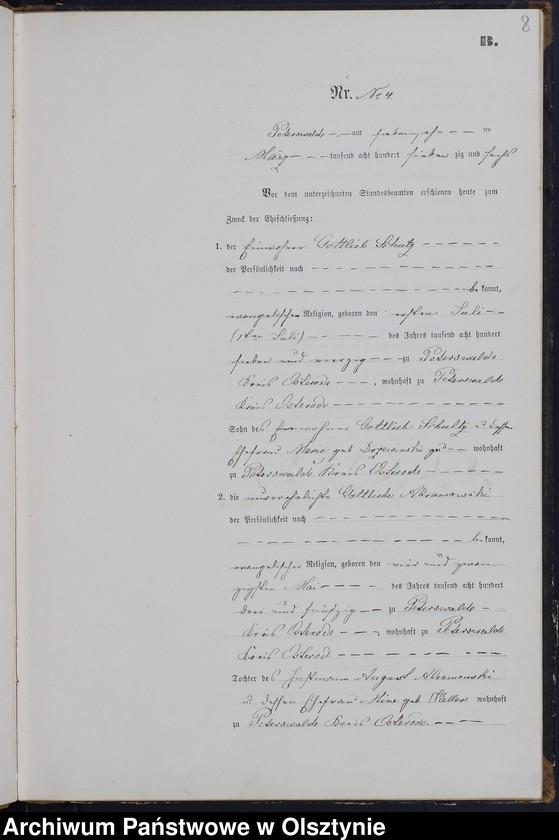 8
B.
Nr. No 4.
Peterswalde am siebenzehn ten
März tausend acht hundert sieben zig und sechs
Vor dem unterzeichneten Standesbeamten erschienen heute zum
Zweck der Eheschließung:
1. der Einwohner Gottlieb Schulz
der Persönlichkeit nach
be kannt,
evangelischer Religion, geboren den ersten Juli
(1ten Juli) des Jahres tausend acht hundert
sieben und vierzig zu Peterswalde
Kreis Osterode, wohnhaft zu Peterswalde
Kreis Osterode
Sohn des Einwohner Gottlieb Schultz u dessen
Ehefrau geb wohnhaft
zu Peterswalde Kreis Osterode
2. die unverehelichte Gottliebe Abramowski
der Persönlichkeit nach
be kannt,
evangelischer Religion, geboren den vier und zwan
zigsten Mai des Jahres tausend acht hundert
drei und fünfzig zu Peterswalde
Kreis Osterode, wohnhaft zu Peterswalde
Kreis Osterode
Tochter des Instmann August Abramowski
u dessen Ehefrau geb Keller wohnhaft
zu Peterswalde Kreis Osterode.
Archiwum Państwowe w Olsztynie